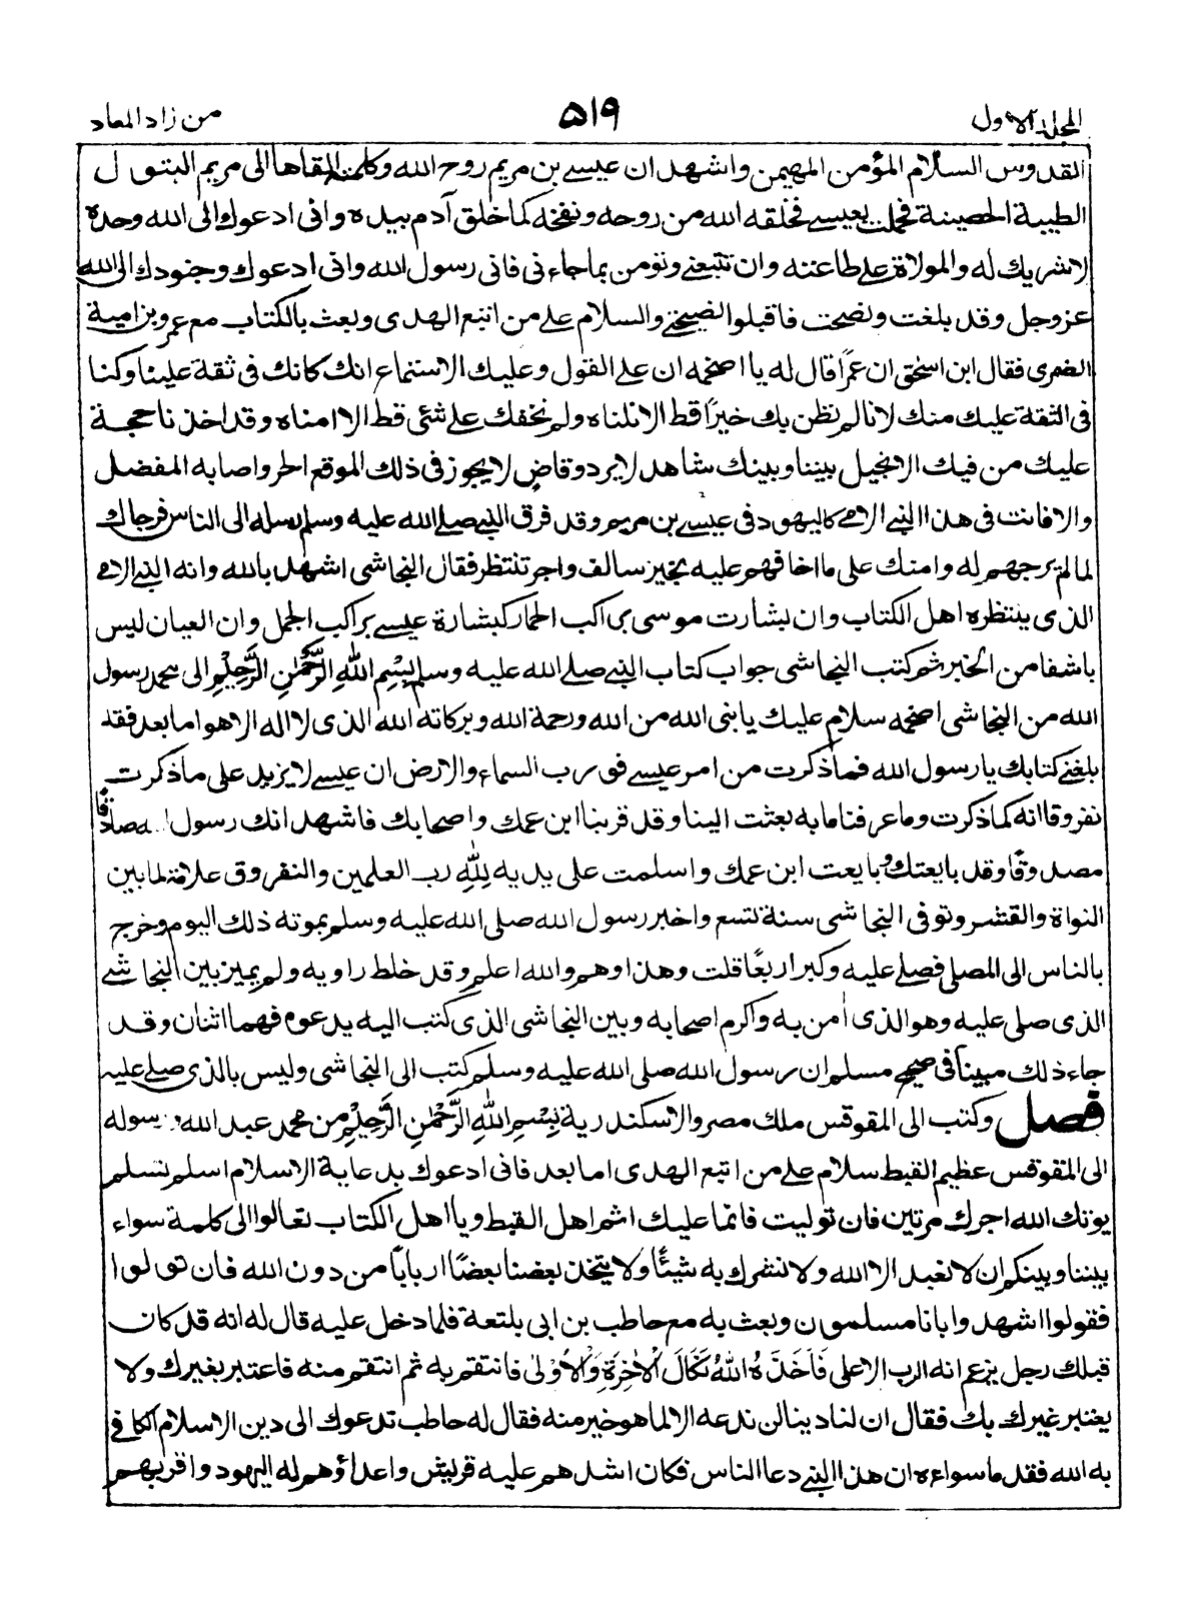 المجلد الاول
۵۱۹
من زاد المعاد
القدوس السلام المؤمن المهيمن واشهد ان عيسے بن مريم روح الله وكلمته القاها الى مريم البتول
الطيبة الحصينة فحملت بعيسے فخلقه الله من روحه ونفخه كما خلق آدم بيده وانى ادعوك والى الله وحده
لاشريك له والموالاة علے طاعته وان تتبعنے وتؤمن بما جاءنى فانى رسول الله وانى ادعوك وجنودك الى الله
عزوجل وقد بلغت ونصحت فاقبلوا نصيحتے والسلام علے من اتبع الهدى وبعث بالكتاب مع عمرو بن امية
الضمرى فقال ابن اسحٰق ان عمرًا قال له يا اصحمه ان علے القول وعليك الاستماع انك كانك فى ثقة علينا وكنا
فى الثقة عليك منك لانا لم نظن بك خيرًا قط الا نلناه ولم نخفك علے شئى قط الا امناه وقد اخذنا حجة
عليك من فيك الانجيل بيننا وبينك شاهد لايرد وقاضٍ لايجوز فى ذلك الموقع الحر واصابه المفضل
والا فانت فى هذا النبے الامے كاليهود فى عيسے بن مريم وقد فرق النبے صلے الله عليه وسلم رسله الى الناس فرجاك
لما لم يرجهم له وامنك على ما اخافهم عليه بخير سالف واجر تنتظر فقال النجاشى اشهد بالله وانه النبے الامے
الذى ينتظره اهل الكتاب وان بشارت موسى براكب الحمار كبشارة عيسے براكب الجمل وان العيان ليس
باشفا من الخبر ثم كتب النجاشى جواب كتاب النبے صلے الله عليه وسلم بِسْمِ اللهِ الرَّحْمٰنِ الرَّحِيْمِ الى محمد رسول
الله من النجاشى اصحمه سلام عليك يا نبى الله من الله ورحمة الله وبركاته الله الذى لا اله الا هو اما بعد فقد
بلغنے كتابك يا رسول الله فما ذكرت من امر عيسے فورب السماء والارض ان عيسے لايزيد على ما ذكرت
نفروقا انه كما ذكرت وما عرفنا ما به بعثت الينا وقد قربنا ابن عمك واصحابك فاشهد انك رسول صادقًا
مصدوقًا وقد بايعتك وبايعت ابن عمك واسلمت على يديه لِلّٰهِ رب العلمين والنفروق علاقة لما بين
النواة والقشر وتوفى النجاشى سنة تسع واخبر رسول الله صلى الله عليه وسلم بموته ذلك اليوم وخرج
بالناس الى المصلى فصلے عليه وكبر اربعًا قلت وهذا وهم والله اعلم وقد خلط راويه ولم يميز بين النجاشے
الذى صلى عليه وهو الذى اٰمن به واكرم اصحابه وبين النجاشى الذى كتب اليه يدعوه فهما اثنان وقد
جاء ذلك مبينًا فى صحيح مسلم ان رسول الله صلى الله عليه وسلم كتب الى النجاشى وليس بالذى صلے عليه
فصل وكتب الى المقوقس ملك مصر والاسكندرية بِسْمِ اللهِ الرَّحْمٰنِ الرَّحِيْمِ من محمد عبد الله ورسوله
الى المقوقس عظيم القبط سلام علے من اتبع الهدى اما بعد فانى ادعوك بدعاية الاسلام اسلم تسلم
يوتك الله اجرك مرتين فان توليت فانما عليك اثم اهل القبط ويا اهل الكتاب تعالوا الى كلمة سواء
بيننا وبينكم ان لا نعبد الا الله ولا نشرك به شيئًا ولا يتخذ بعضنا بعضًا اربابًا من دون الله فان تولوا
فقولوا اشهدوا بانا مسلمون وبعث به مع حاطب بن ابى بلتعة فلما دخل عليه قال له انه قد كان
قبلك رجل يزعم انه الرب الاعلى فَاَخَذَهُ اللهُ نَكَالَ الْاٰخِرَةِ وَالْاُوْلٰى فانتقم به ثم انتقم منه فاعتبر بغيرك ولا
يعتبر غيرك بك فقال ان لنا دينا لن ندعه الا لما هو خير منه فقال له حاطب تدعوك الى دين الاسلام الكافے
به الله فقد ما سواه ان هذا النبے دعا الناس فكان اشدهم عليه قريش واعداؤهم له اليهود واقربهم